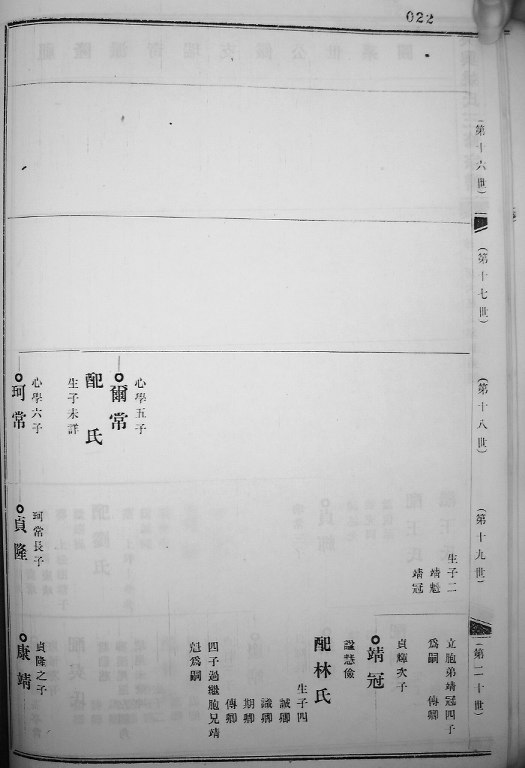 022
（第十六世）
（第十七世）
（第十八世）
（第十九世）
（第二十世）
心學五子
爾常
配 氏
生子未詳
心學六子
珂常
生子二
靖魁
靖冠
珂常長子
貞隆
立胞弟靖冠四子
爲嗣 傳卿
貞輝次子
靖冠
諡慧儉
配林氏
生子四
誠卿
識卿
期卿
傳卿
四子過繼胞兄靖
魁爲嗣
貞隆之子
康靖